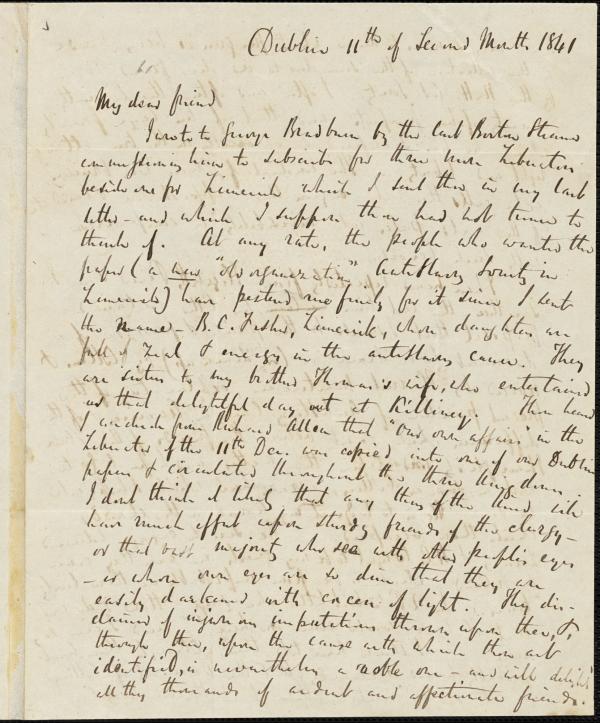 Dublin 11th of Second Month 1841
My dear friend
I wrote to George Bradburn by the last Boston Steamer
commissioning him to subscribe for three more Liberators
beside one for Limerick which I sent thee in my last
letter - and which I suppose thou had not time to
think of. At any rate, the people who wanted the
paper (a new "old organization" Antislavery Society in
Limerick) have pestered me finely for it since I sent
the name - B. C. Fisher, Limerick, whose daughters are
full of zeal & energy in the antislavery cause. They
are sisters to my brother Thomas's wife, who entertained
us that delightful day out at Killiney. Thou heard
I from Richard Allen that "Our own affairs" in the
Liberator of the 11th Dec. was copied into one of our Dublin
papers & circulated throughout the three kingdoms.
I dont think it likely that any thing of the kind will
have much effect upon sturdy friends of the clergy -
or that vast majority who see with other people's eyes
- or whose own eyes are so dim that they are
easily darkened with excess of light. Thy dis-
claimer of injurious imputations thrown upon thee, &,
through thee, upon the cause with which thou art
identified, is nevertheless a noble one - and will delight
all thy thousands of ardent and affectionate friends.